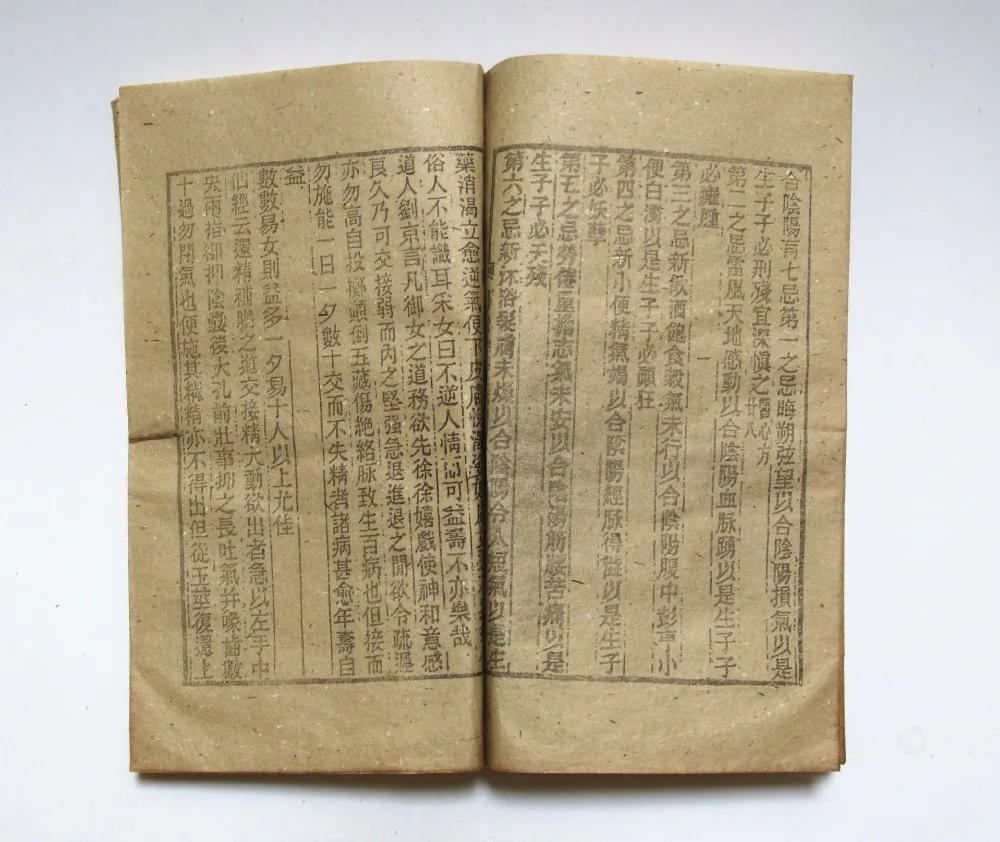 合陰陽有七忌第一之忌晦朔弦望以合陰陽損氣以是
生子子必刑殘宜深慎之醫心方廿八
第二之忌雷風天地感動以合陰陽血脈踴以是生子子
必癰腫
第三之忌新飲酒飽食穀氣未行以合陰陽腹中彭亨小
便白濁以是生子子必顛狂
第四之忌新小便精氣竭以合陰陽經脉得澁以是生子
子必妖孽
第五之忌勞倦重擔志氣未安以合陰陽筋腰苦痛以是
生子子必夭殘
第六之忌新沐浴髮膚未燥以合陰陽令人短氣以是生
藥消渴立愈逆氣便下皮膚悅澤
俗人不能識耳采女曰不逆人情而可益壽不亦樂哉
道人劉京言凡御女之道務欲先徐徐嬉戲使神和意感
良久乃可交接弱而內之堅强急退進退之閒欲令疏遲
亦勿高自投擲顛倒五藏傷絕絡脉致生百病也但接而
勿施能一日一夕數十交而不失精者諸病甚愈年壽自
益
數數易女則益多一夕易十人以上尤佳
仙經云還精補腦之道交接精大動欲出者急以左手中
央兩指却抑陰囊後大孔前壯事抑之長吐氣并啄齒數
十過勿閉氣也便施其精精亦不得出但從玉莖復還上